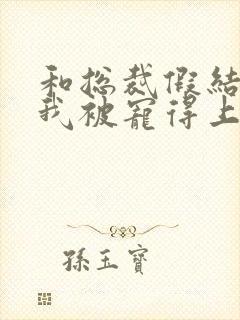 和总裁假结
我被宠得上
孫玉寶